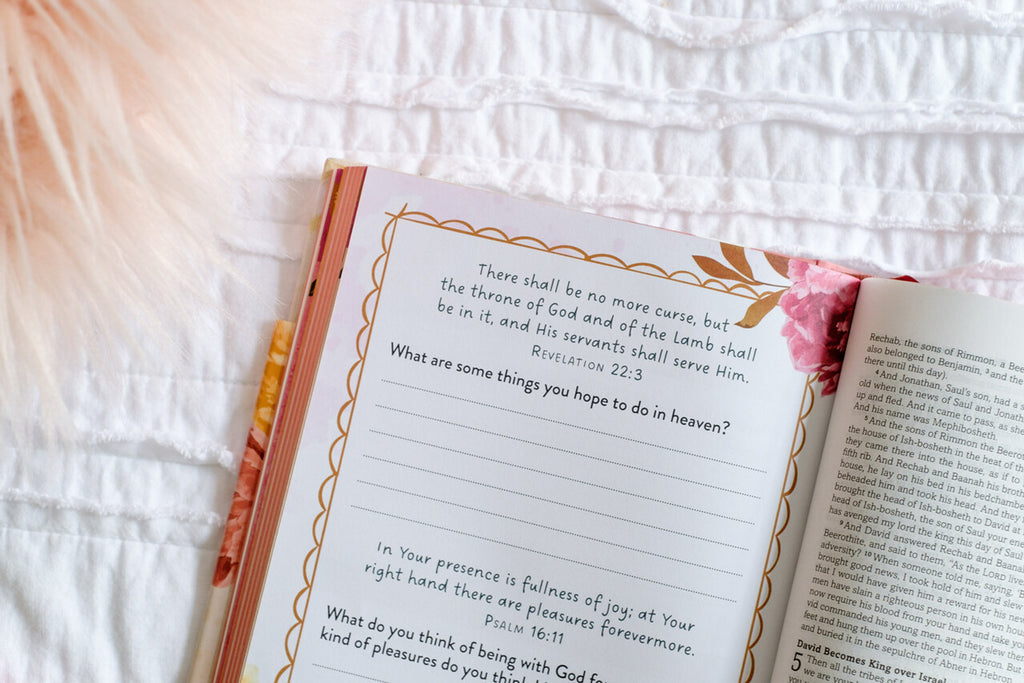 There shall be no more curse, but
the throne of God and of the Lamb shall
be in it, and His servants shall serve Him.
REVELATION 22:3
What are some things you hope to do in heaven?
In Your presence is fullness of joy; at Your
right hand there are pleasures forevermore.
PSALM 16:11
What do you think of being with God
kind of pleasures do you
Rechab, the sons of Rimmon, a
also belonged to Benjamin, 3 and the
there until this day).
4 And Jonathan, Saul's son, had a
old when the news of Saul and
up and fled. And it came to pass, as
And his name was Mephibosheth.
5 And the sons of Rimmon the
the house of Ish-bosheth in the heat of
they came there into the house, as if to
fifth rib. And Rechab and Baanah his
house, he lay on his bed in his
beheaded him and took his head. And they
brought the head of Ish-bosheth to David at
head of Ish-bosheth, the son of Saul your
has avenged my lord the king this day of
9 And David answered Rechab and
Beerothite, and said to them, "As the LORD
adversity? 10 When someone told me, saying,
brought good news, I took hold of him and
that I would have given him a reward for his
men have slain a righteous person in his own
now require his blood from your hand and take
commanded his young men, and they
feet and hung them up over the pool in Hebron. But
and buried it in the sepulchre of Abner in Hebron
David Becomes King over Israel
5 Then all the tribes of
we are your